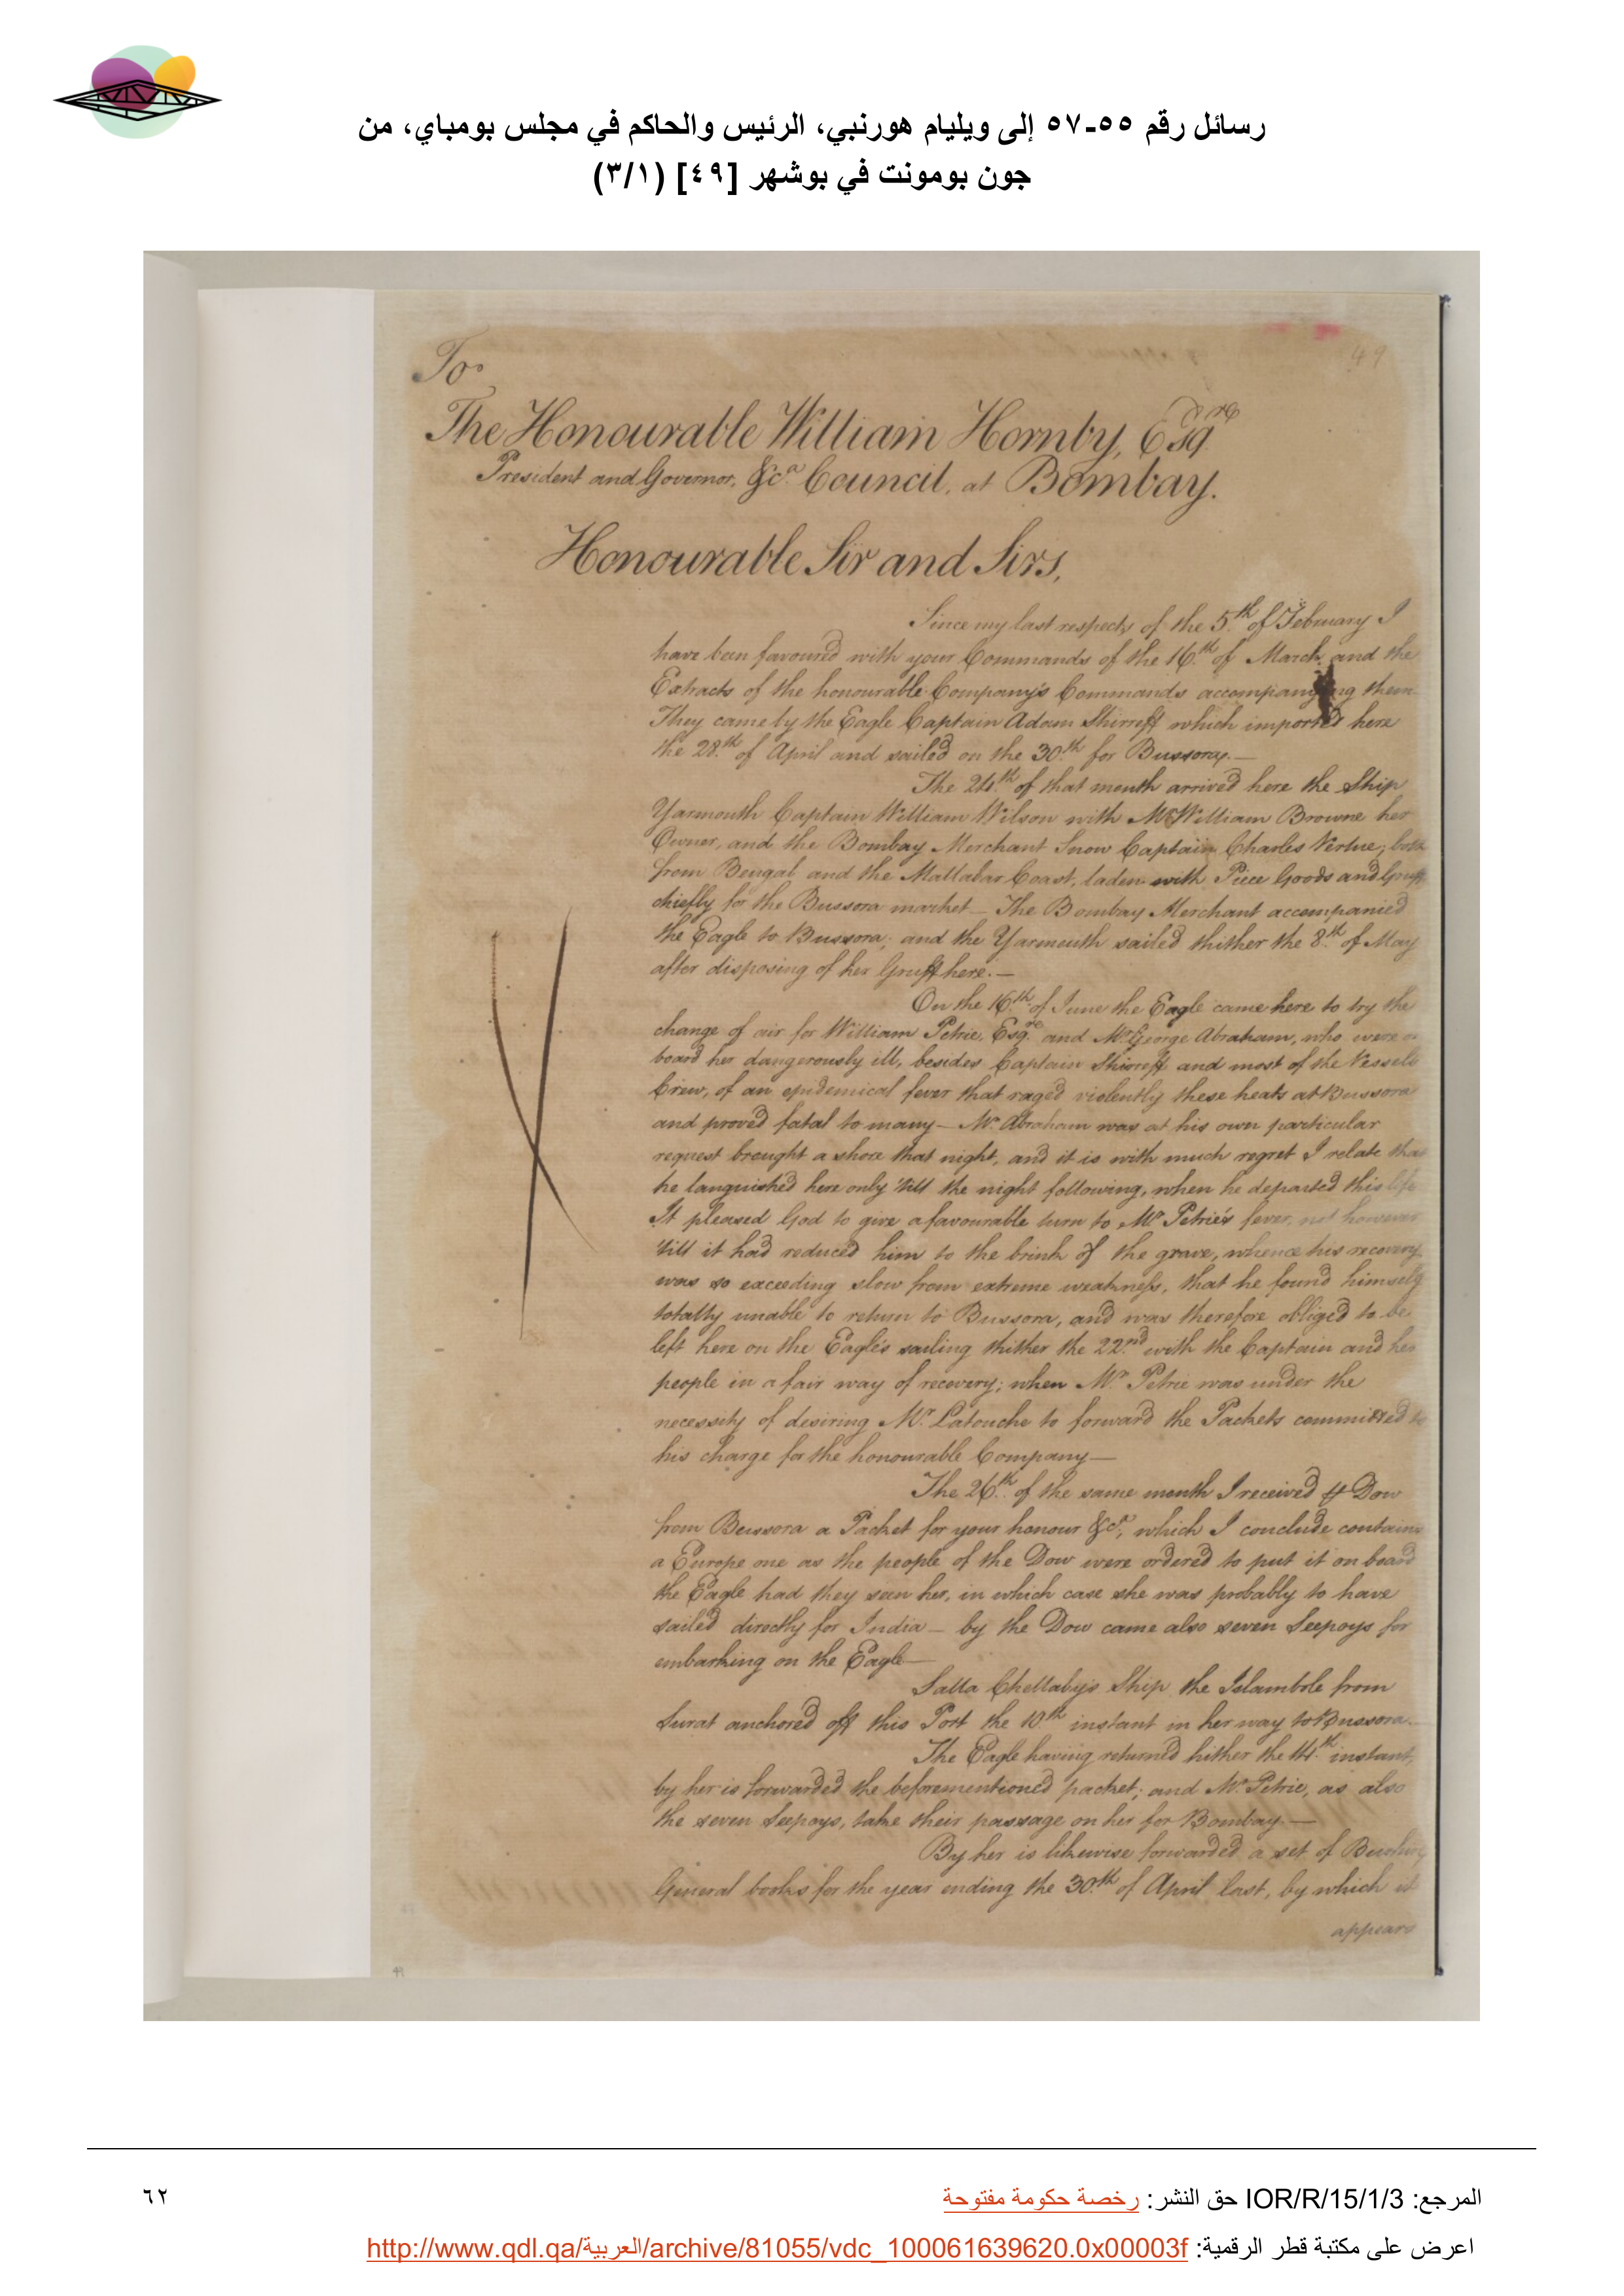 رسائل رقم ٥٥-٥٧ إلى ويليام هورنبي، الرئيس والحاكم في مجلس بومباي، من
جون بومونت في بوشهر [٤٩] (٣/١)
49
To
The Honourable William Hornby, Esqre
President and Governor, &ca. Council, at Bombay.
Honourable Sir and Sirs,
Since my last respects of the 5th of February I
have been favoured with your Commands of the 16th of March and the
Extracts of the honourable Company's Commands accompanying them
They came by the Eagle Captain Adam Shirreff which imported here
the 28th of April and sailed on the 30th for Bussora.—
The 24th of that month arrived here the Ship
Yarmouth Captain William Wilson with Mr William Browne her
Owner, and the Bombay Merchant Snow Captain Charles Vertue; both
from Bengal and the Mallabar Coast, laden with Piece Goods and Gruff
chiefly for the Bussora market— The Bombay Merchant accompanied
the Eagle to Bussora; and the Yarmouth sailed thither the 8th of May
after disposing of her Gruff here.—
On the 16th of June the Eagle came here to try the
change of air for William Petrie, Esqre and Mr George Abraham, who were on
board her dangerously ill, besides Captain Shirreff and most of the Vessels
Crew, of an epidemical fever that raged violently these heats at Bussora
and proved fatal to many— Mr. Abraham was at his own particular
request brought a shore that night, and it is with much regret I relate that
he languished here only 'till the night following, when he departed this life
It pleased God to give a favourable turn to Mr Petrie's fever, not however
'till it had reduced him to the brink of the grave, whence his recovery
was so exceeding slow from extreme weakness, that he found himself
totally unable to return to Bussora, and was therefore obliged to be
left here on the Eagle's sailing thither the 22nd with the Captain and her
people in a fair way of recovery; when Mr. Petrie was under the
necessity of desiring Mr. Latouche to forward the Packets committed to
his charge for the honourable Company—
The 26th of the same month I received ⅌ Dow
from Bussora a Packet for your honour &ca, which I conclude contains
a Europe one as the people of the Dow were ordered to put it on board
the Eagle had they seen her, in which case she was probably to have
sailed directly for India— by the Dow came also seven Seepoys for
embarking on the Eagle—
Salla Chellaby's Ship the Islambole from
Surat anchored off this Port the 10th instant in her way to Bussora.—
The Eagle having returned hither the 14th instant,
by her is forwarded the beforementioned packet; and Mr. Petrie, as also
the seven Seepoys, take their passage on her for Bombay—
By her is likewise forwarded a set of Bushire
General books for the year ending the 30th of April last, by which it
appears
49
المرجع: IOR/R/15/1/3 حق النشر: رخصة حكومة مفتوحة
٦٢
اعرض على مكتبة قطر الرقمية: http://www.qdl.qa/العربية/archive/81055/vdc_100061639620.0x00003f